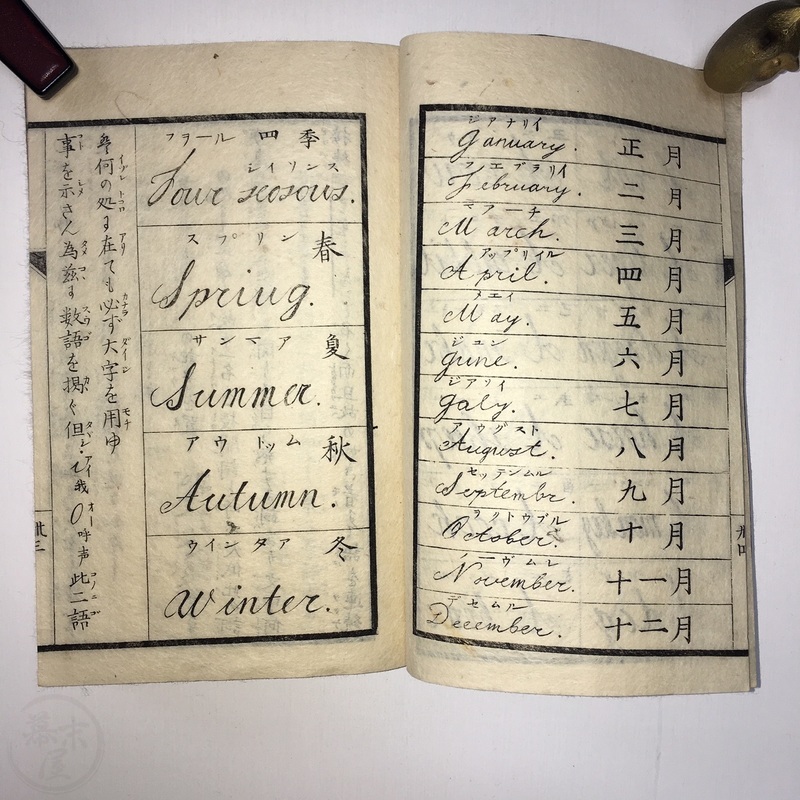 卅三
事を示さん為茲に数語を掲ぐ但しi我O呼声此二語
は何の処に在ても必ず大字を用ゆ
フヲール 四季
シイソンス
Four seasous.
スプリン 春
Spriug.
サンマア 夏
Summer.
アウトッム 秋
Autumn.
ウインタア 冬
Winter.
ジアナリイ
January. 正月
フエブラリイ
February. 二月
マアーチ
March. 三月
アップリイル
April. 四月
メエイ
May. 五月
ジュン
June. 六月
ジアリイ
Jaly. 七月
アウグスト
August. 八月
セッテンムル
Septembr. 九月
ヲクトウブル
October. 十月
ノーヴムレ
November. 十一月
デセムル
December. 十二月
卅四